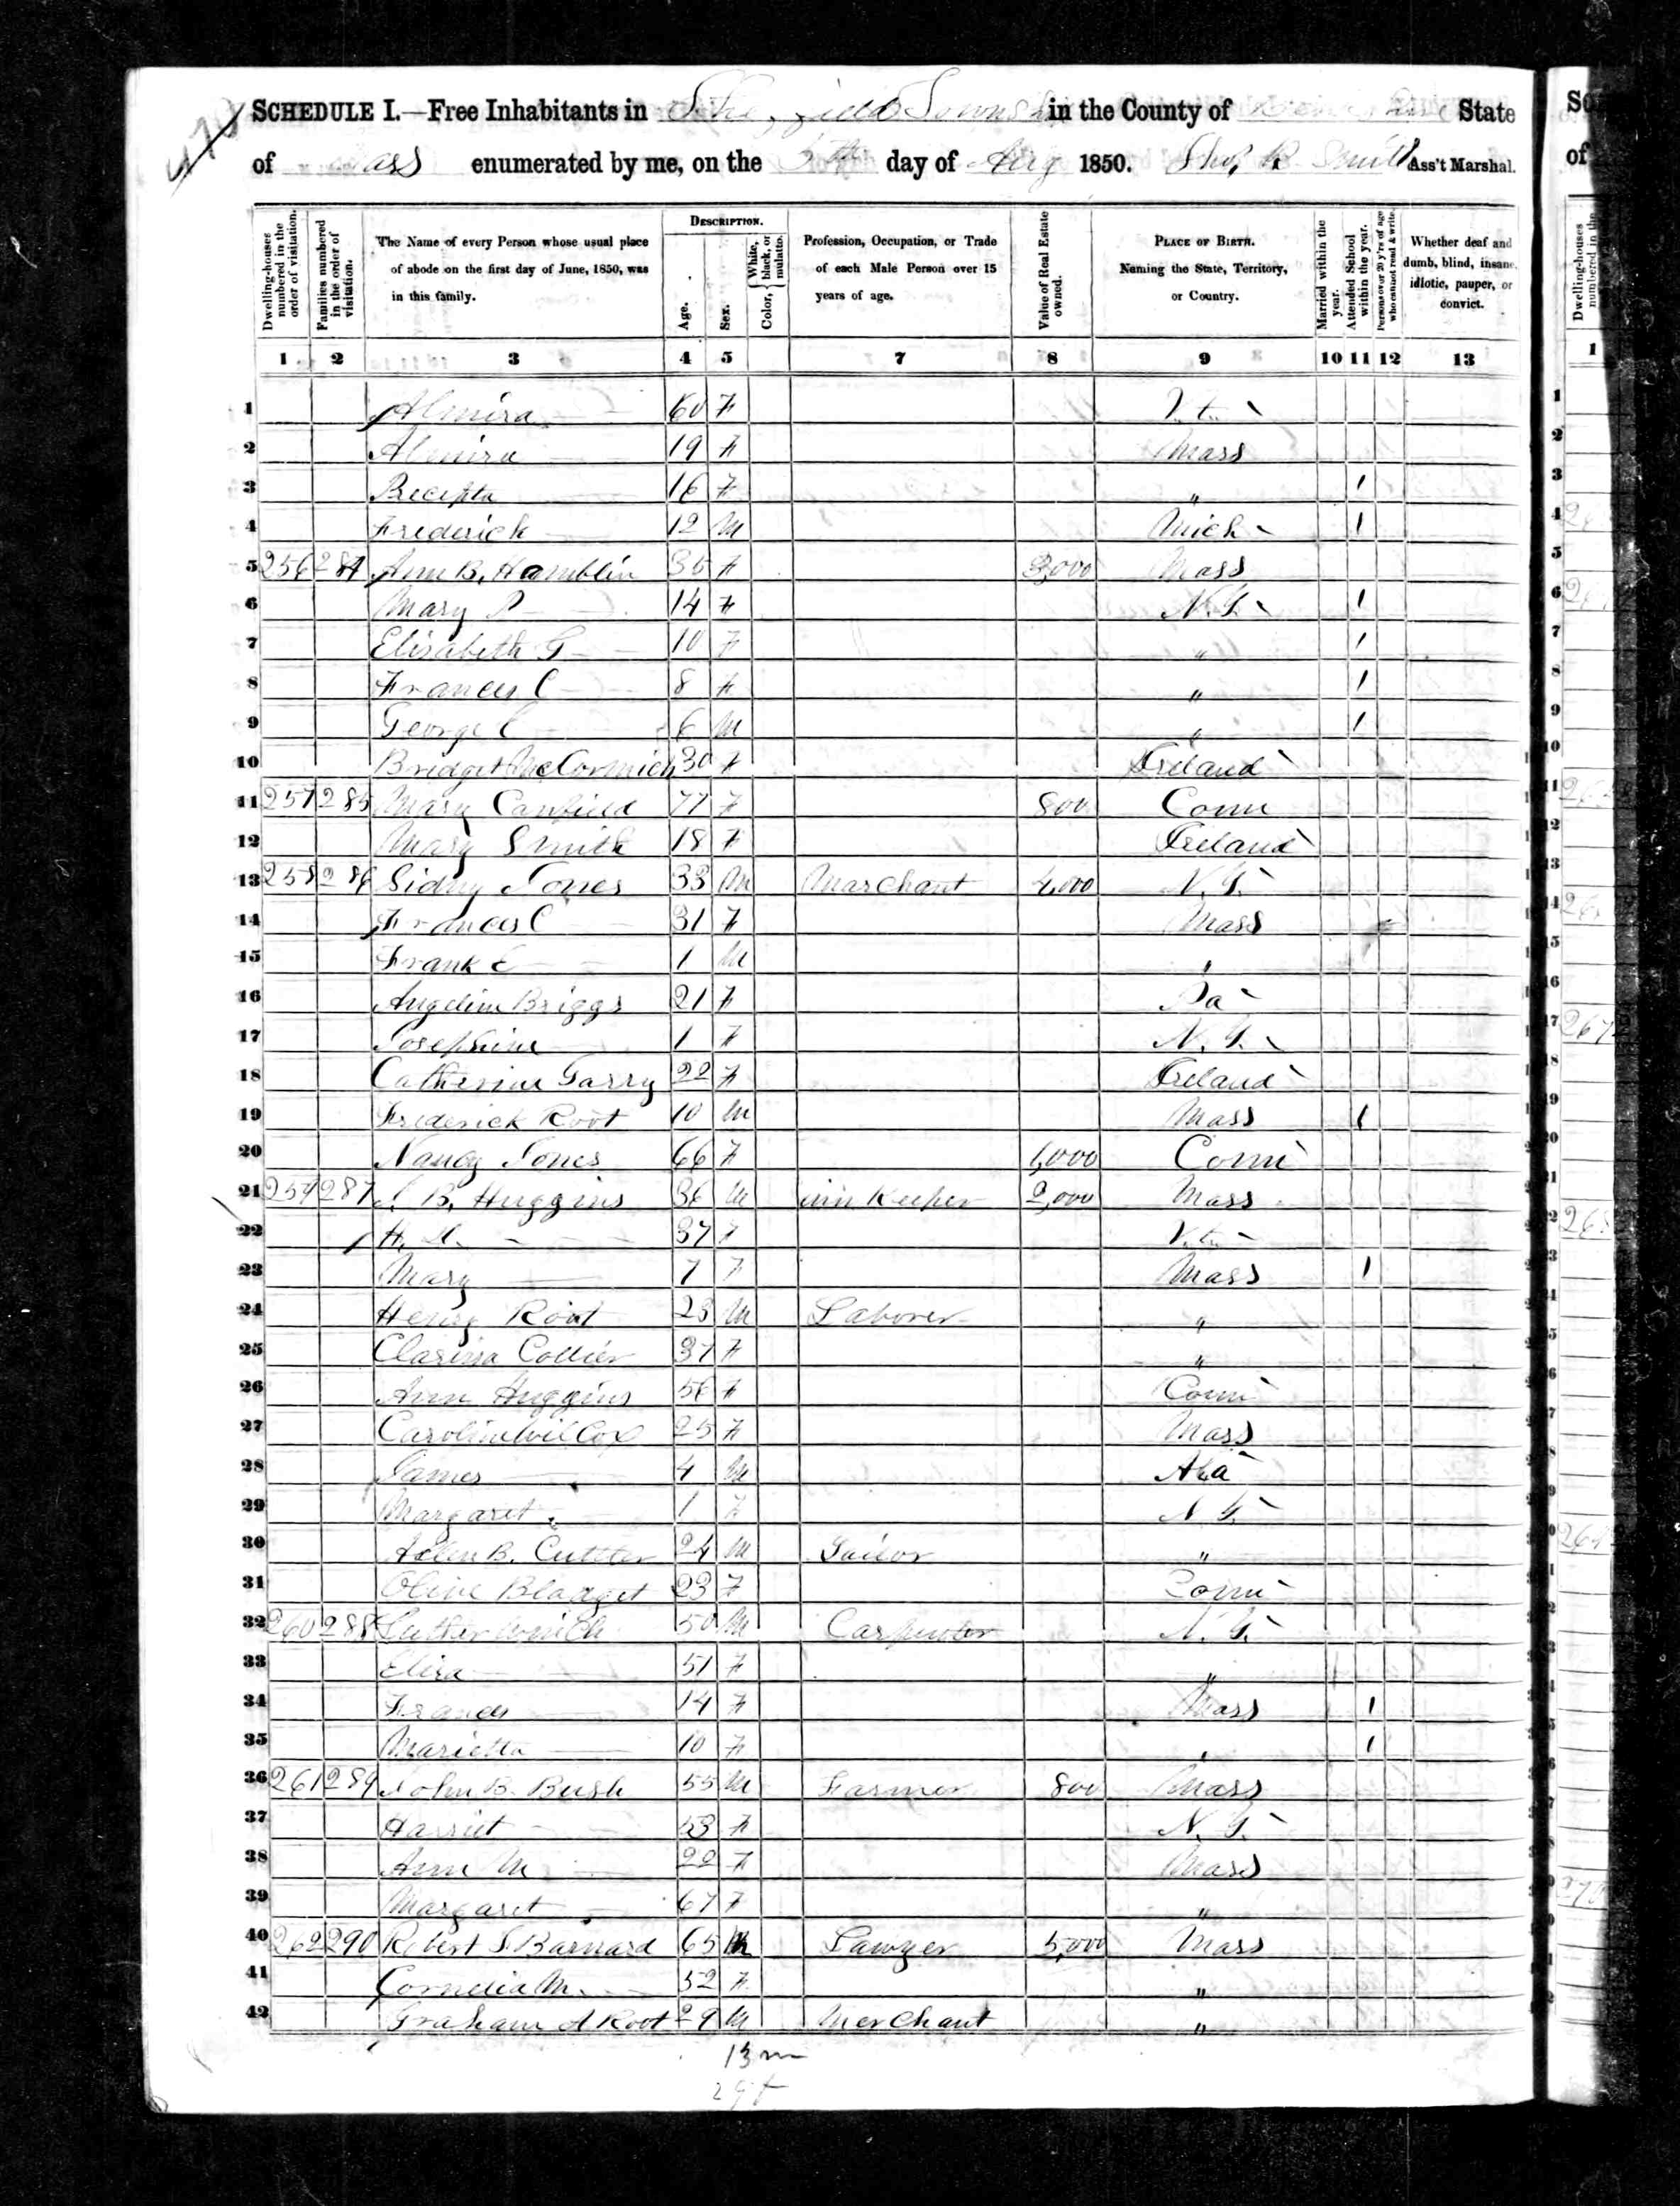 SCHEDULE I.—Free Inhabitants in Sheffield Township in the County of State
of Mass enumerated by me, on the 5th day of Aug 1850. R Smith Ass't Marshal.
Dwelling-houses numbered in the order of visitation.
Families numbered in the order of visitation.
The Name of every Person whose usual place of abode on the first day of June, 1850, was in this family.
DESCRIPTION.
Age.
Sex.
Color, { White, black, or mulatto.
Profession, Occupation, or Trade of each Male Person over 15 years of age.
Value of Real Estate owned.
PLACE OF BIRTH. Naming the State, Territory, or Country.
Married within the year.
Attended School within the year.
Persons over 20 y'rs of age who cannot read & write.
Whether deaf and dumb, blind, insane, idiotic, pauper, or convict.
1 2 3 4 5 7 8 9 10 11 12 13
1 Almira 60 F V.t.
2 Almira 19 F Mass
3 Recepta 16 F " 1
4 Frederick 12 M Mich 1
5 256 284 Ann B. Hamblin 35 F 3,000 Mass
6 Mary 14 F N.Y. 1
7 Elisabeth G 10 F " 1
8 Frances C 8 F " 1
9 George C 6 M " 1
10 Bridget McCormich 30 F Ireland
11 257 285 Mary Canfield 77 F 800 Conn
12 Mary Smith 18 F Ireland
13 258 286 Sidny Jones 33 M Marchant 4,000 N.Y.
14 Frances C 31 F Mass
15 Frank E 1 M "
16 Angeline Briggs 21 F Pa
17 Josephine 1 F N.Y.
18 Catherine Garry 22 F Ireland
19 Frederick Root 10 M Mass 1
20 Nancy Jones 66 F 1,000 Conn
21 259 287 B. Huggins 36 M inn Keeper 2,000 Mass
22 H. 37 F V.t.
23 Mary 7 F Mass 1
24 Henry Root 23 M Laborer "
25 Clarissa Collier 37 F "
26 Ann Huggins 56 F Conn
27 Caroline Wil Cox 25 F Mass
28 James 4 M Ala
29 Margaret 1 F N.Y.
30 B. Cuttler 24 M Tailor "
31 Olive Blanget 23 F Conn
32 260 288 Luther Winch 50 M Carpenter N.Y.
33 Eliza 51 F "
34 Frances 14 F Mass 1
35 Marietta 10 F " 1
36 261 289 John B. Bush 55 M Farmer 800 Mass
37 Harriet 53 F N.Y.
38 Ann M 22 F Mass
39 Margaret 67 F "
40 262 290 Robert S. Barnard 65 M Lawyer 5,000 Mass
41 Cornelia M. 52 F "
42 Graham A Root 29 M Merchant "
13 m
29 f